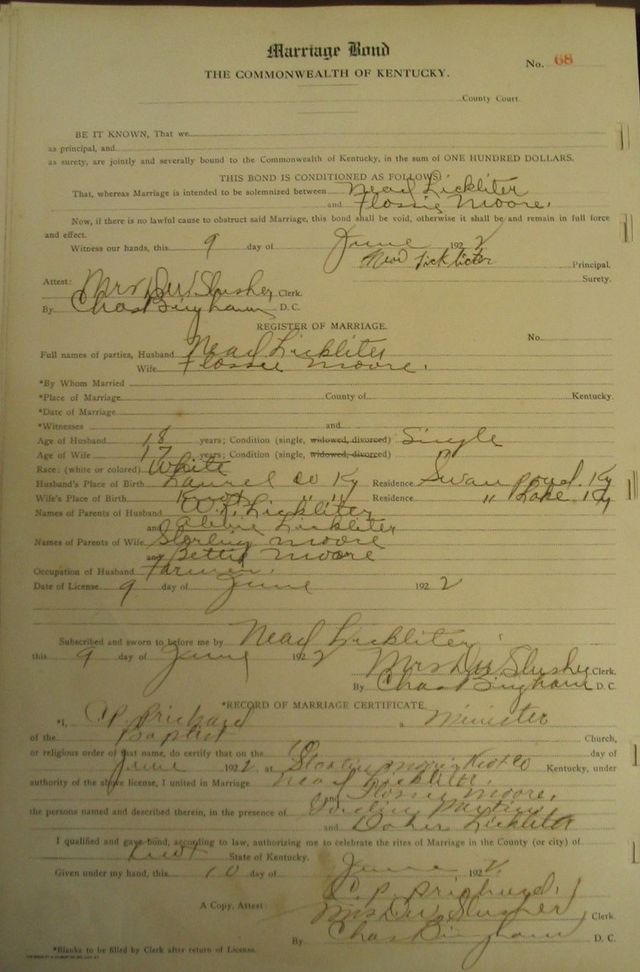 Marriage Bond
No. 68
THE COMMONWEALTH OF KENTUCKY.
County Court.
BE IT KNOWN, That we
as principal, and
as surety, are jointly and severally bound to the Commonwealth of Kentucky, in the sum of ONE HUNDRED DOLLARS.
THIS BOND IS CONDITIONED AS FOLLOWS:
That, whereas Marriage is intended to be solemnized between Nead Lickliter
and Flossie Moore.
Now, if there is no lawful cause to obstruct said Marriage, this bond shall be void, otherwise it shall be and remain in full force
and effect.
Witness our hands, this 9 day of June 1922
Nead Lickliter Principal.
Surety.
Attest: Mrs D W Slusher Clerk.
By Chas Bingham D. C.
REGISTER OF MARRIAGE.
No.
Full names of parties, Husband Nead Lickliter
Wife Flossie Moore.
*By Whom Married
*Place of Marriage County of Kentucky.
*Date of Marriage
*Witnesses and
Age of Husband 18 years; Condition (single, widowed, divorced) Single
Age of Wife 17 years; Condition (single, widowed, divorced) "
Race: (white or colored) White
Husband's Place of Birth Laurel Co Ky Residence Swan pond. Ky
Wife's Place of Birth Knox " " Residence " Lake. Ky
Names of Parents of Husband Lickliter
and Lickliter
Names of Parents of Wife Sterling Moore
and Bettie Moore
Occupation of Husband Farmer.
Date of License 9 day of June 1922
Subscribed and sworn to before me by Nead Lickliter
this 9 day of June 1922
Mrs D W Slusher Clerk.
By Chas Bingham D. C.
*RECORD OF MARRIAGE CERTIFICATE.
*I, C. P. Prichard a Minister
of the Baptist Church,
or religious order of that name, do certify that on the 10 day of
June 1922 at Kentucky, under
authority of the above license, I united in Marriage Nead Lickliter
and Flossie Moore,
the persons named and described therein, in the presence of
and Lickliter
I qualified and gave bond, according to law, authorizing me to celebrate the rites of Marriage in the County (or city) of
State of Kentucky.
Given under my hand, this 10 day of June 1922
C. P. Prichard.
A Copy, Attest: Mrs D W Slusher Clerk.
By Chas Bingham D. C.
*Blanks to be filled by Clerk after return of License.